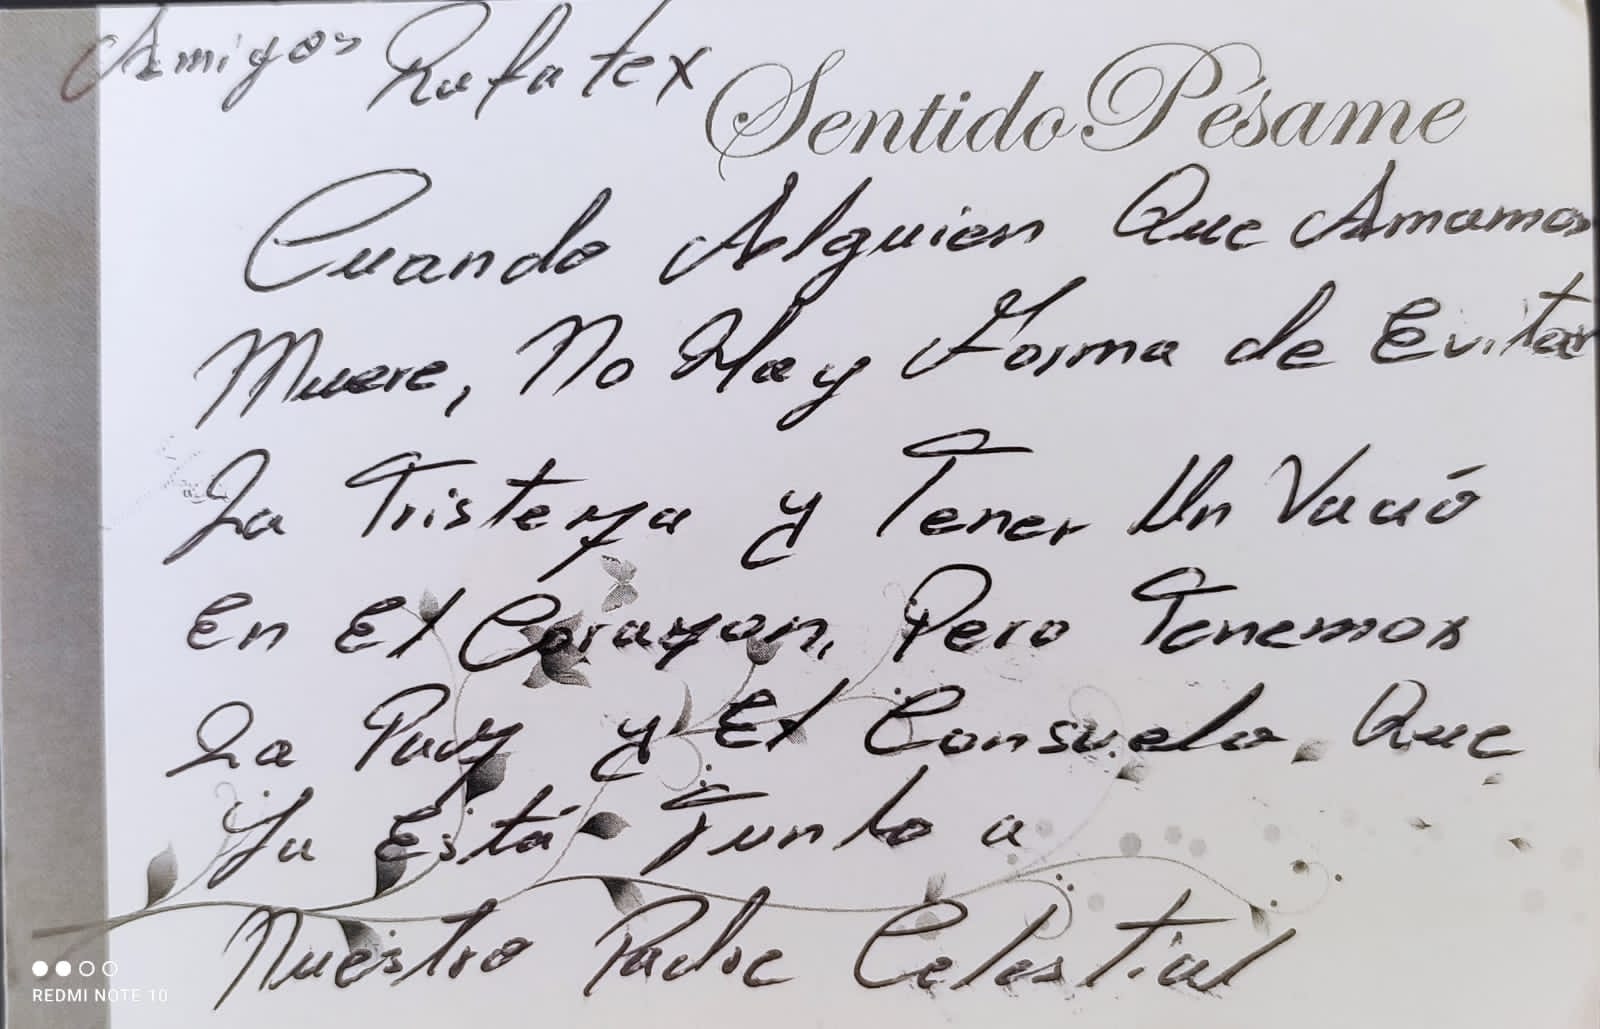 Amigos Rafatex
Sentido Pésame
Cuando Alguien Que Amamos
Muere, No Hay Forma de Evitar
La Tristeza y Tener Un Vació
En El Corazon, Pero Tenemos
La Paz y El Consuelo, Que
Ya Está Junto a
Nuestro Padre Celestial
REDMI NOTE 10